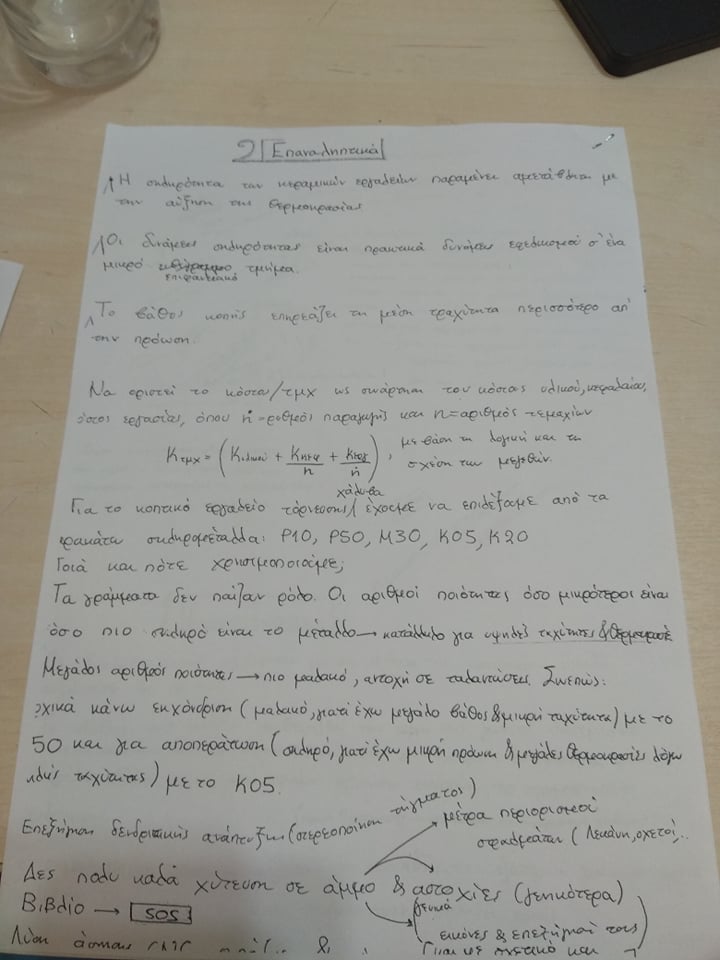 2 Επαναληπτικά
Η σκληρότητα των κεραμικών εργαλείων παραμένει αμετάβλητη με
την αύξηση της θερμοκρασίας
Οι δυνάμεις σκληρότητας είναι πρακτικά δυνάμεις εφελκυσμού σ' ένα
μικρό τμήμα.
επιφανειακό
Το βάθος κοπής επηρεάζει τη μέση τραχύτητα περισσότερο απ'
την πρόωση.
Να οριστεί το κόστος/τμχ ως συνάρτηση του κόστους υλικού, κεφαλαίου,
όστος εργασίας, όπου ṅ=ρυθμός παραγωγής και n=αριθμός τεμαχίων
Kτμχ = (Kυλικού + Kκεφ/n + Kεργ/ṅ), με βάση τη λογική και τη
σχέση των μεγεθών.
χάλυβα
Για το κοπτικό εργαλείο τόρνευσης/ έχουμε να επιλέξουμε από τα
ρακάτω σκληρομέταλλα: P10, P50, M30, K05, K20
Ποιά και πότε χρησιμοποιούμε;
Τα γράμματα δεν παίζαν ρόλο. Οι αριθμοί ποιότητας όσο μικρότεροι είναι
όσο πιο σκληρό είναι το μέταλλο → κατάλληλο για υψηλές ταχύτητες &
Μεγάλος αριθμός ποιότητας → πιο μαλακό, αντοχή σε ταλαντώσεις. Συνεπώς:
ρχικά κάνω εκχόνδριση (μαλακό, γιατί έχω μεγάλο βάθος & μικρή ταχύτητα) με το
50 και για αποπεράτωση (σκληρό, γιατί έχω μικρή πρόωση & μεγάλες θερμοκρασίες λόγω
ταχύτητας) με το K05.
Επεξήγηση δενδριτικής ανάπτυξης (στερεοποίηση τήγματος)
μέτρα περιορισμού
(Λεκάνη, οχετοί..
Δες πολυ καλά χύτευση σε άμμο & αστοχίες (γενικότερα)
Βιβλίο → SOS
γενικά
εικόνες & επεξήγησή τους
Λύση &